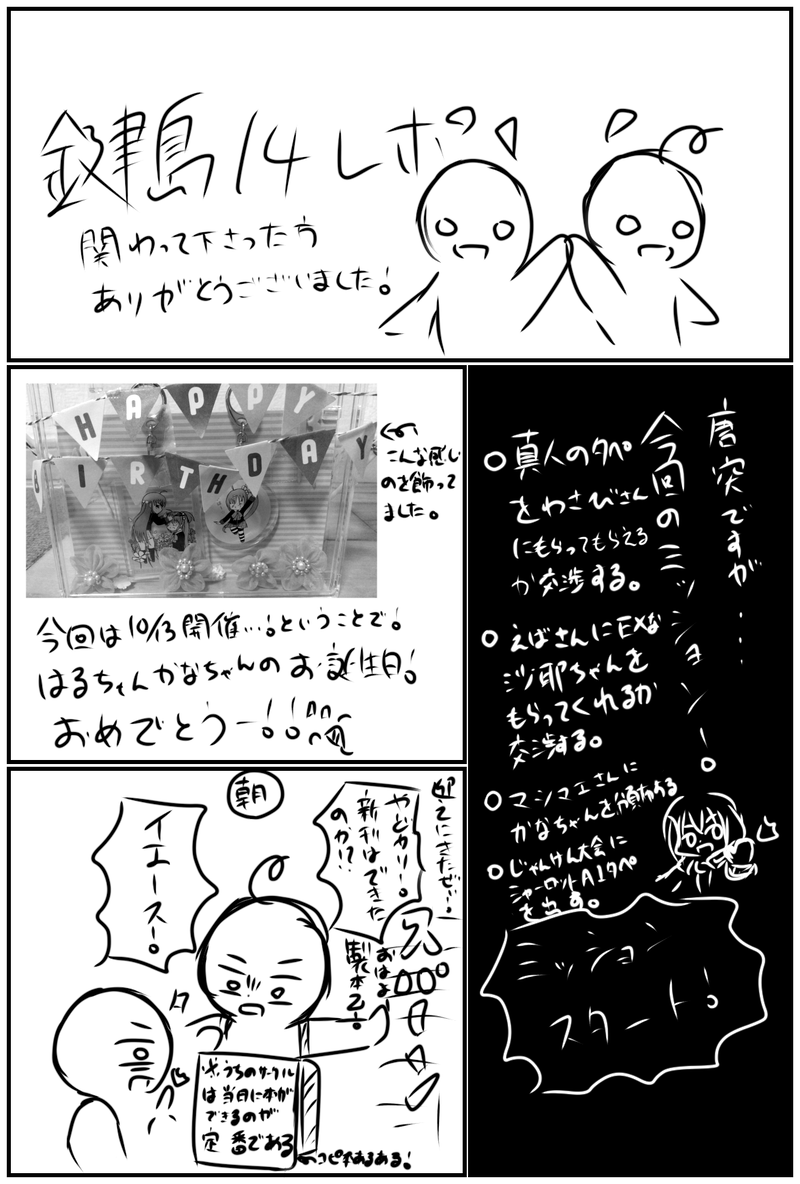 鍵島14レポ
関わって下さった方
ありがとうございました!
唐突ですが……
今回のミッション!
○真人のタペ
をわさびさん
にもらってもらえる
か交渉する。
○えばさんにEXな
沙耶ちゃんを
もらってくれるか
交渉する。
○マシマエさんに
かなちゃんを
○じゃんけん大会に
シャーロットA1タペ
を出す。
ミッション
スタート!
HAPPY
BIRTHDAY
←こんな感じ
のを飾って
ました。
今回は10/13開催…!ということで!
はるちゃんかなちゃんのお誕生日!
おめでとうー!!
朝
迎えにきたぜぃ!
やどカリ!
新刊はできた
のか!?
イエース!
おはよ
製本乙!
※うちのサークル
は当日に本が
できるのが
定番である
←コピ本あるある!